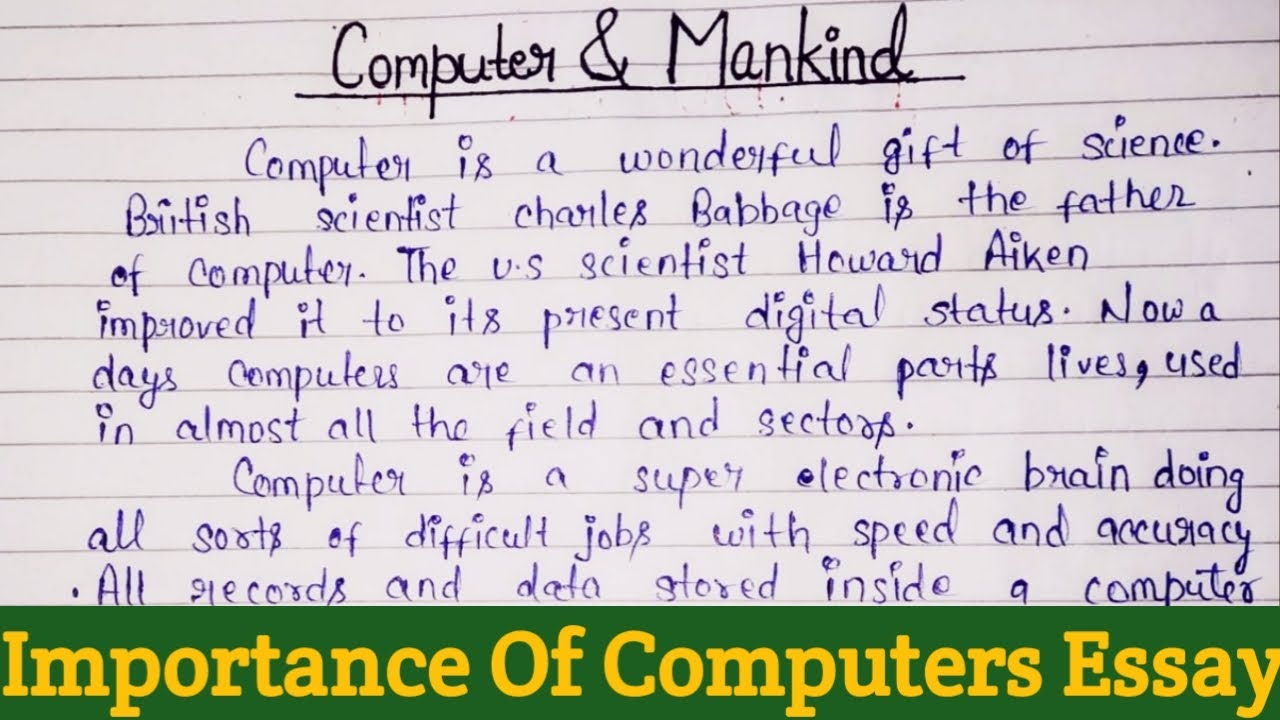 Computer & Mankind
Computer is a wonderful gift of science.
British scientist charles Babbage is the father
of computer. The U.S scientist Howard Aiken
improved it to its present digital status. Now a
days computers are an essential parts lives, used
in almost all the field and sectors.
Computer is a super electronic brain doing
all sorts of difficult jobs with speed and accuracy
. All records and data stored inside a computer
Importance Of Computers Essay